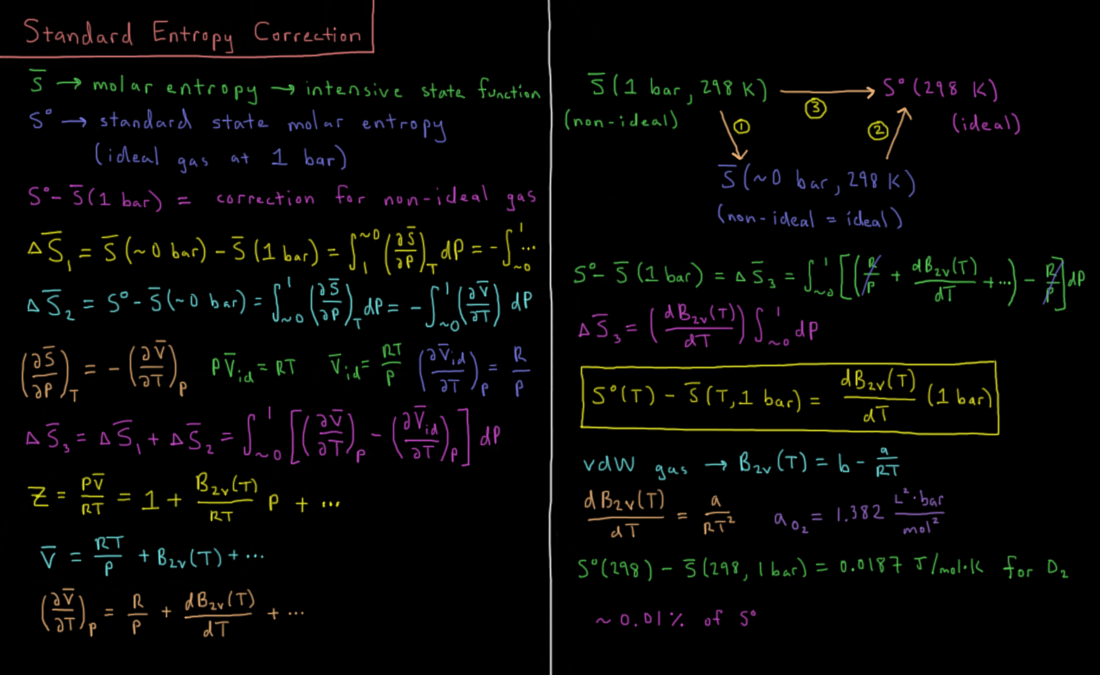 Standard Entropy Correction
S̅ → molar entropy → intensive state function
S° → standard state molar entropy
(ideal gas at 1 bar)
S° - S̅(1 bar) = correction for non-ideal gas
ΔS̅₁ = S̅(~0 bar) - S̅(1 bar) = ∫₁^~0 (∂S̅/∂P)_T dP = -∫_~0^1 ...
ΔS̅₂ = S° - S̅(~0 bar) = ∫_~0^1 (∂S̅/∂P)_T dP = -∫_~0^1 (∂V̅/∂T) dP
(∂S̅/∂P)_T = -(∂V̅/∂T)_P PV̅_id = RT V̅_id = RT/P (∂V̅_id/∂T)_P = R/P
ΔS̅₃ = ΔS̅₁ + ΔS̅₂ = ∫_~0^1 [(∂V̅/∂T)_P - (∂V̅_id/∂T)_P] dP
Z = PV̅/RT = 1 + B₂ᵥ(T)/RT P + ...
V̅ = RT/P + B₂ᵥ(T) + ...
(∂V̅/∂T)_P = R/P + dB₂ᵥ(T)/dT + ...
S̅(1 bar, 298 K) → S°(298 K)
(non-ideal) ① ③ ② (ideal)
S̅(~0 bar, 298 K)
(non-ideal = ideal)
S° - S̅(1 bar) = ΔS̅₃ = ∫_~0^1 [(R/P + dB₂ᵥ(T)/dT + ...) - R/P] dP
ΔS̅₃ = (dB₂ᵥ(T)/dT) ∫_~0^1 dP
S°(T) - S̅(T, 1 bar) = dB₂ᵥ(T)/dT (1 bar)
vdW gas → B₂ᵥ(T) = b - a/RT
dB₂ᵥ(T)/dT = a/RT² a_O₂ = 1.382 L²·bar/mol²
S°(298) - S̅(298, 1 bar) = 0.0187 J/mol·K for O₂
~ 0.01% of S°